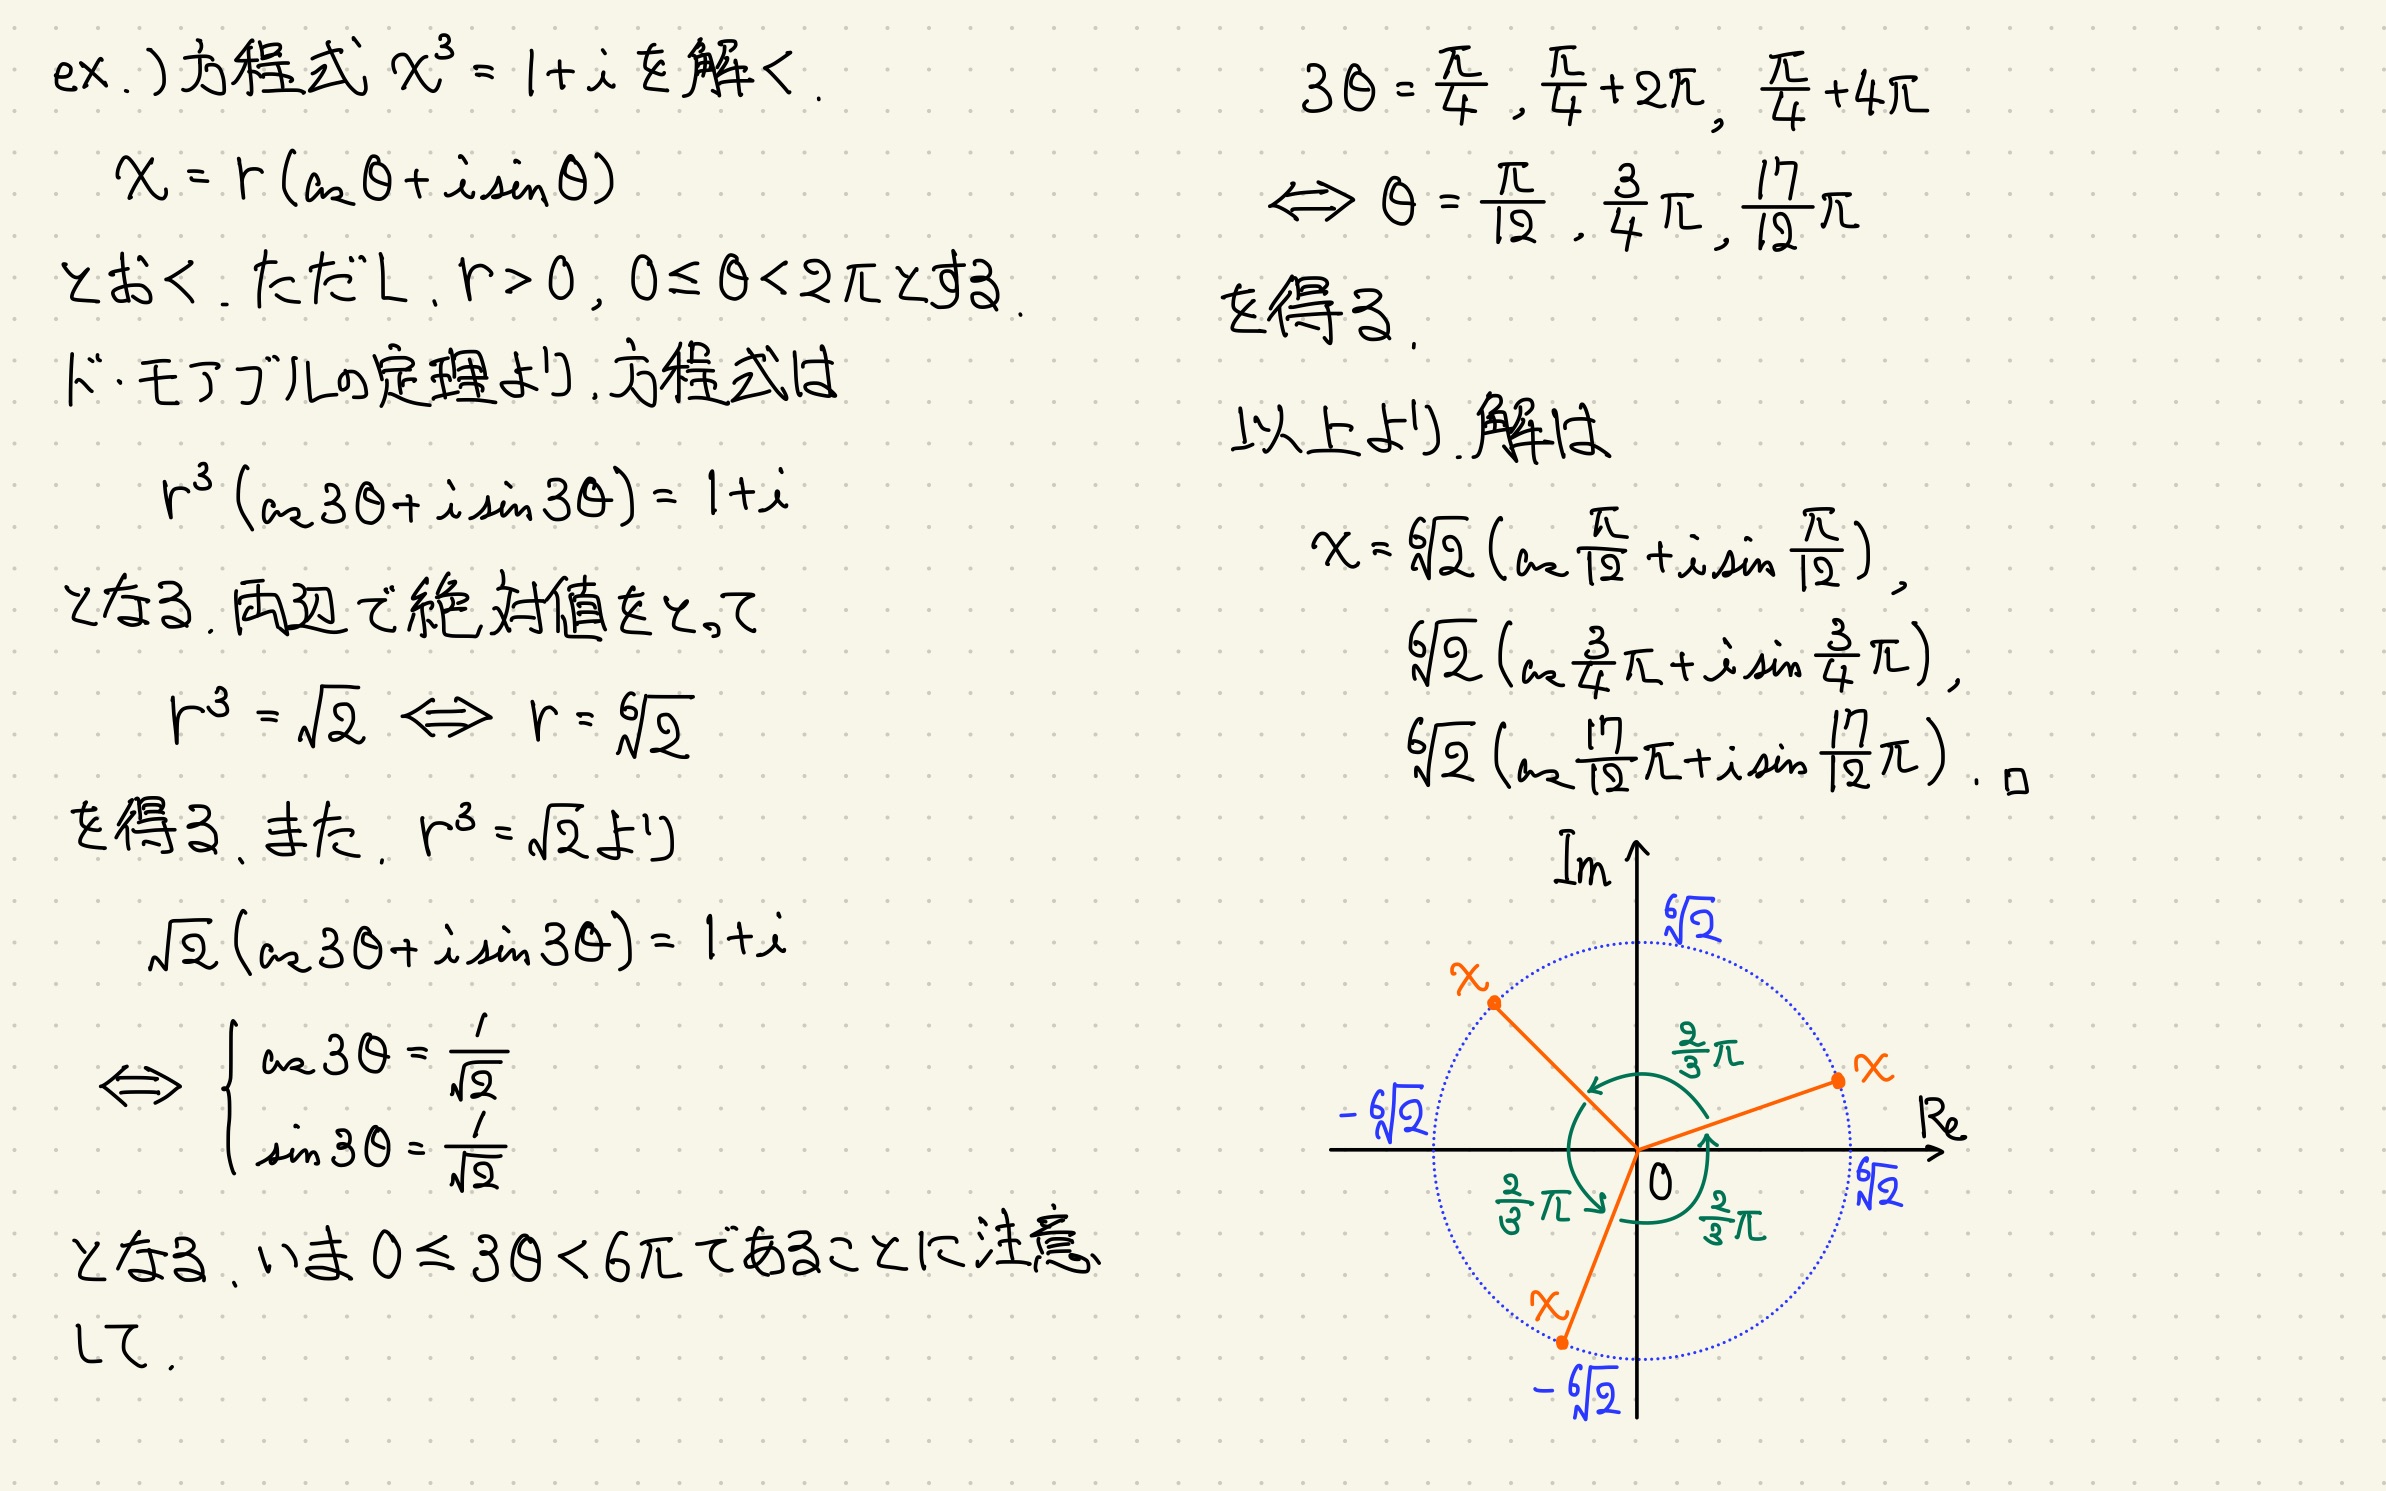 ex.) 方程式 x³ = 1+i を解く.
x = r(cosθ+isinθ)
とおく. ただし, r>0, 0≤θ<2πとする.
ド・モアブルの定理より, 方程式は
r³(cos3θ+isin3θ) = 1+i
となる. 両辺で絶対値をとって
r³ = √2 ⟺ r = ⁶√2
を得る. また, r³ = √2より
√2(cos3θ+isin3θ) = 1+i
⟺ { cos3θ = 1/√2
sin3θ = 1/√2
となる. いま 0≤3θ<6πであることに注意
して,
3θ = π/4, π/4+2π, π/4+4π
⟺ θ = π/12, 3/4 π, 17/12 π
を得る.
以上より, 解は
x = ⁶√2(cos π/12 + isin π/12),
⁶√2(cos 3/4 π + isin 3/4 π),
⁶√2(cos 17/12 π + isin 17/12 π). □
Im
⁶√2
x
2/3 π
x
-⁶√2
Re
O
⁶√2
2/3 π
2/3 π
x
-⁶√2